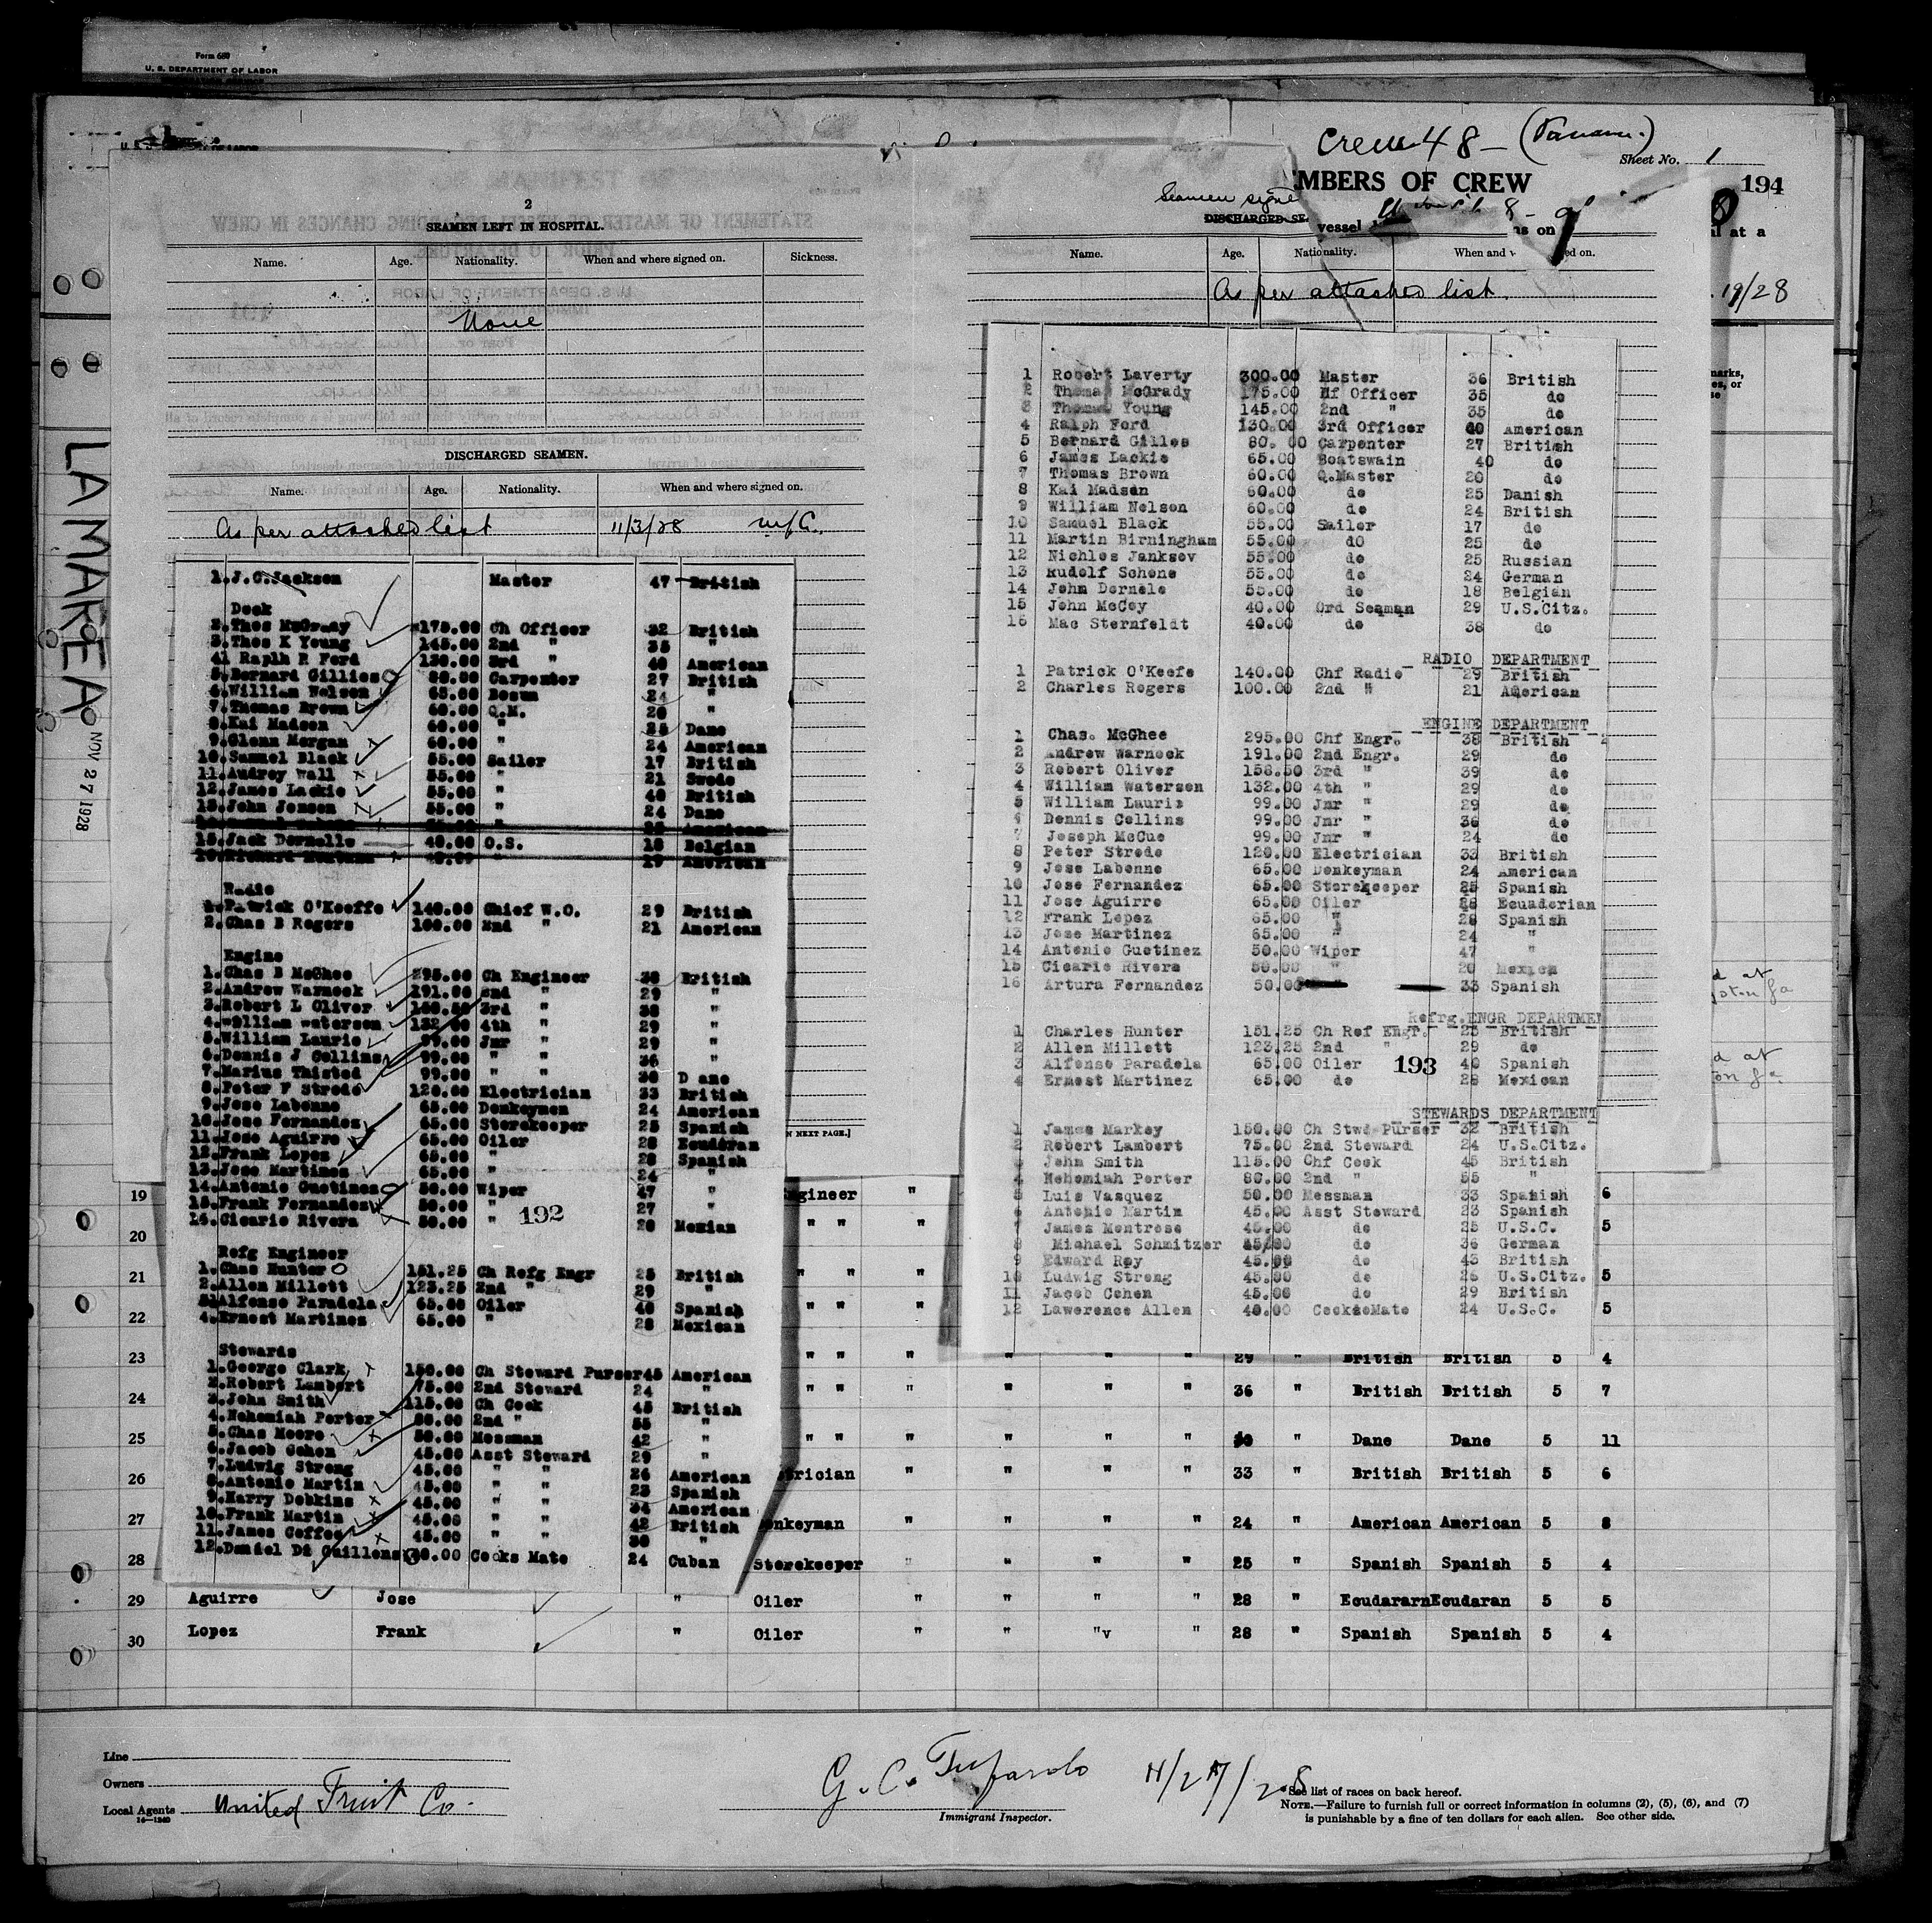 Form 680
U. S. DEPARTMENT OF LABOR
Crew 48 - (Panama.)
Sheet No. 1
MBERS OF CREW
194
2
SEAMEN LEFT IN HOSPITAL.
Name. Age. Nationality. When and where signed on. Sickness.
None
DISCHARGED SEAMEN.
Name. Age. Nationality. When and where signed on.
As per attached list 11/3/28
1. J.C.Jackson Master 47 British
Deck
2. Thos McGrady 175.00 Ch Officer 32 British
3. Thos K Young 145.00 2nd " 35 "
41 Raplh R Ford 130.00 3rd " 40 American
5. Bernard Gillies 80.00 Carpenter 27 British
6. William Nelson 65.00 Bosun 24 "
7. Thomas Brown 60.00 Q.M. 20 "
8. Kai Madsen 60.00 " 25 Dane
9. Glenn Morgan 60.00 " 24 American
10. Samuel Black 55.00 Sailor 17 British
11. Audrey Wall 55.00 " 21 Swede
12. James Lackie 55.00 " 40 British
13. John Jensen 55.00 " 24 Dane
American
15. Jack Dornello 40.00 O.S. 18 Belgian
" 19 American
Radio
1. Patrick O'Keeffe 140.00 Chief W.O. 29 British
2. Chas B Rogers 100.00 2nd " 21 American
Engine
1. Chas B McGhee 295.00 Ch Engineer 38 British
2. Andrew Warnock 191.00 2nd " 29 "
3. Robert L Oliver 158.50 3rd " 38 "
4. William Waterson 132.00 4th " 29 "
5. William Laurie 99.00 Jnr " 29 "
6. Dennis J Collins 99.00 " " 36 "
7. Marius Thisted 99.00 " " 30 D ane
8. Peter F Strede 120.00 Electrician 33 British
9. Jose Labonne 65.00 Donkeymen 24 American
10. Jose Fernandez 65.00 Storekeeper 25 Spanish
11. Jose Aguirre 65.00 Oiler 28 Ecuadran
12. Frank Lopez 65.00 " 28 Spanish
13. Jose Martinez 65.00 " 24 "
14. Antonio Guetinez 50.00 Wiper 47 "
15. Frank Fernandez 50.00 " 27 "
16. Cicario Rivera 50.00 " 20 Mexian
192
Refg Engineer
1. Chas Hunter 151.25 Ch Refg Engr 25 British
2. Allen Millett 123.25 2nd " 29 "
3. Alfonso Paradela 65.00 Oiler 40 Spanish
4. Ernest Martinez 65.00 " 28 Mexican
Stewards
1. George Clark 150.00 Ch Steward Purser 45 American
2. Robert Lambert 75.00 2nd Steward 24 "
3. John Smith 115.00 Ch Cook 45 British
4. Nehemiah Porter 80.00 2nd " 55 "
5. Chas Moore 50.00 Messman 42 "
6. Jacob Cohen 45.00 Asst Steward 29 "
7. Ludwig Streng 45.00 " " 26 American
8. Antonio Martin 45.00 " " 23 Spanish
9. Harry Dobkins 45.00 " " 34 American
10. Frank Martin 45.00 " " 42 British
11. James Coffee 45.00 " " 30 "
12. Daniel Di Guillens 40.00 Cooks Mate 24 Cuban
Seamen signe
DISCHARGED SE
vessel
ns on
al at a
Name. Age. Nationality. When and ed on.
As per attached list.
19/28
1 Robert Laverty 300.00 Master 36 British
2 Thomas McGrady 175.00 Hf Officer 35 do
3 Thomas Young 145.00 2nd " 35 do
4 Ralph Ford 130.00 3rd Officer 40 American
5 Bernard Gilles 80.00 Carpenter 27 British
6 James Lackie 65.00 Boatswain 40 do
7 Thomas Brown 60.00 Q.Master 20 do
8 Kai Madsen 60.00 do 25 Danish
9 William Nelson 60.00 do 24 British
10 Samuel Black 55.00 Sailor 17 do
11 Martin Birningham 55.00 do 25 do
12 Nichles Janksov 55.00 do 25 Russian
13 Rudolf Schone 55.00 do 24 German
14 John Dernele 55.00 do 18 Belgian
15 John McCoy 40.00 Ord Seaman 29 U.S.Citz.
16 Mac Sternfeldt 40.00 do 38 do
RADIO DEPARTMENT
1 Patrick O'Keefe 140.00 Chf Radio 29 British
2 Charles Rogers 100.00 2nd " 21 American
ENGINE DEPARTMENT
1 Chas. McGhee 295.00 Chf Engr. 38 British
2 Andrew Warnock 191.00 2nd Engr. 29 do
3 Robert Oliver 158.50 3rd " 39 do
4 William Waterson 132.00 4th " 29 do
5 William Lauris 99.00 Jnr " 29 do
Dennis Collins 99.00 Jnr " 36 do
7 Joseph McCue 99.00 Jnr " 24 do
8 Peter Strede 120.00 Electrician 33 British
9 Jose Labonne 65.00 Donkeyman 24 American
10 Jose Fernandez 65.00 Storekeeper 25 Spanish
11 Jose Aguirre 65.00 Oiler 28 Ecuadorian
12 Frank Lopez 65.00 " 28 Spanish
13 Jose Martinez 65.00 " 24 "
14 Antonio Guetinez 50.00 Wiper 47 "
15 Cicario Rivera 50.00 " 20 Mexican
16 Artura Fernandez 50.00 33 Spanish
Refrg.ENGR DEPARTMEN
1 Charles Hunter 151.25 Ch Ref Engr. 25 British
2 Allen Millett 123.25 2nd " 29 do
3 Alfonso Paradela 65.00 Oiler 40 Spanish
4 Ernest Martinez 65.00 do 28 Mexican
193
STEWARDS DEPARTMENT
1 James Markey 150.00 Ch Stwd Purser 32 British
2 Robert Lambert 75.00 2nd Steward 24 U.S.Citz.
John Smith 115.00 Chf Cook 45 British
4 Nehemiah Porter 80.00 2nd " 55 "
5 Luis Vasquez 50.00 Messman 33 Spanish
6 Antonio Martin 45.00 Asst Steward 23 Spanish
7 James Montrose 45.00 do 25 U.S.C.
8 Michael Schmitzer 45.00 do 36 German
9 Edward Roy 45.00 do 43 British
10 Ludwig Streng 45.00 do 26 U.S.Citz.
11 Jacob Cohen 45.00 do 29 British
12 Lawerence Allen 40.00 CooksMate 24 U.S.C.
N NEXT PAGE.]
LAMAREA NOV 27 1928
19 ngineer " 6
20 " " " 5
21 " " " 5
22 " " " 5
23 " " " " " " 29 " British British 5 4
24 " " " " " " 36 " British British 5 7
25 " " " " " " 30 " Dane Dane 5 11
26 trician " " " " 33 " British British 5 6
27 onkeyman " " " " 24 " American American 5 8
28 Storekeeper " " " " 25 " Spanish Spanish 5 4
29 Aguirre Jose " Oiler " " " " 28 " Ecudararn Ecudaran 5 5
30 Lopez Frank " Oiler " " "v " 28 " Spanish Spanish 5 4
Line
Owners
Local Agents United Fruit Co.
14—1240
G. C.
11/27/28
Immigrant Inspector.
See list of races on back hereof.
NOTE.—Failure to furnish full or correct information in columns (2), (5), (6), and (7)
is punishable by a fine of ten dollars for each alien. See other side.